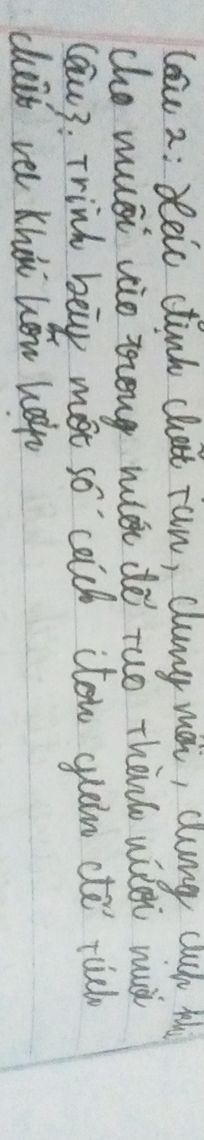 Câu 2: Xác định chất tan, dung môi, dung dịch khi
cho muối vào trong nước để tạo thành nước muối
Câu 3. Trình bày một số cách đơn giản để tách
chất ra khỏi hỗn hợp